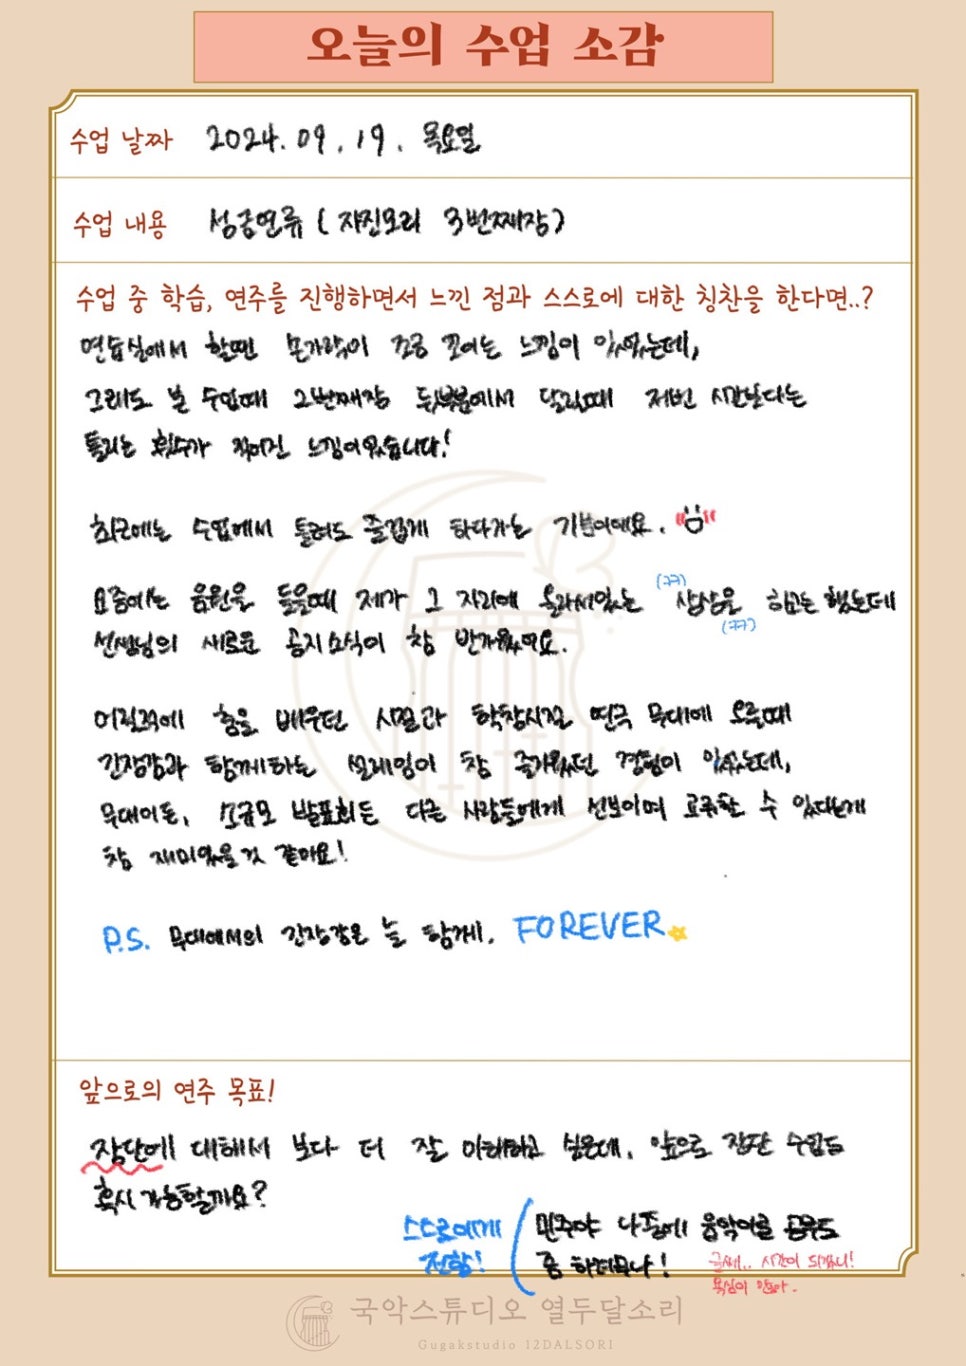 오늘의 수업 소감
수업 날짜 2024. 09. 19. 목요일
수업 내용 성금연류 ( 자진모리 3번째장)
수업 중 학습, 연주를 진행하면서 느낀 점과 스스로에 대한 칭찬을 한다면..?
연습실에서 할땐 손가락이 조금 꼬이는 느낌이 있었는데,
그래도 본 수업때 2번째장 뒷부분에서 달릴때 저번 시간보다는
틀리는 횟수가 적어진 느낌이었습니다!
최근에는 수업에서 틀려도 즐겁게 하다가는 기분이에요.
요즘에는 음원을 들을때 제가 그 자리에 올라서있는 상상을 하고는 했는데
(ㅋㅋ)
(ㅋㅋ)
선생님의 새로운 공지소식이 참 반가웠어요.
어릴적에 춤을 배우던 시절과 학창시절 연극 무대에 오를때
긴장감과 함께하는 설레임이 참 즐거웠던 경험이 있었는데,
무대이든, 소규모 발표회든 다른 사람들에게 선보이며 교류할 수 있다는게
참 재미있을것 같아요!
P.S. 무대에서의 긴장감은 늘 함께. FOREVER
앞으로의 연주 목표!
장단에 대해서 보다 더 잘 이해하고 싶은데, 앞으로 장단 수업도
혹시 가능할까요?
스스로에게 전함!
민주야 나중에 음악이론 공부도
좀 하려무나!
글쎄.. 시간이 되겠니!
욕심이 많아.
국악스튜디오 열두달소리
Gugakstudio 12DALSORI